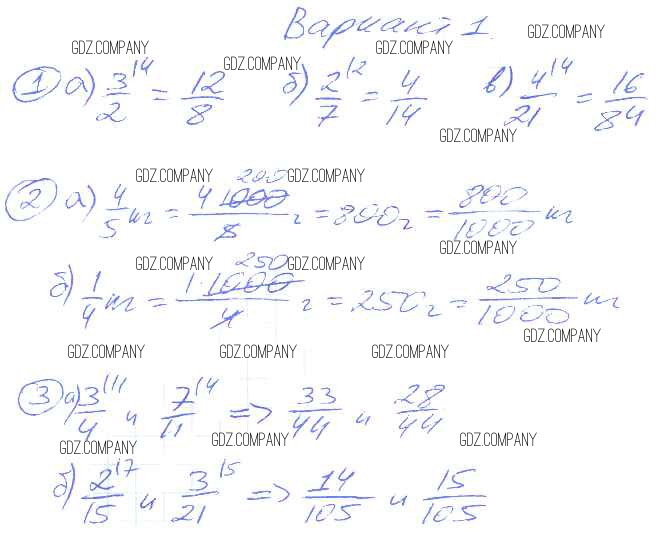 Вариант 1.
GDZ.COMPANY GDZ.COMPANY GDZ.COMPANY GDZ.COMPANY
1 а) 3/2 \4 = 12/8 б) 2/7 \2 = 4/14 в) 4/21 \4 = 16/84
GDZ.COMPANY
GDZ.COMPANY GDZ.COMPANY
2 а) 4/5 кг = 4 1000/5 200 г = 800 г = 800/1000 кг
GDZ.COMPANY
GDZ.COMPANY GDZ.COMPANY
б) 1/4 кг = 1·1000/4 250 г = 250 г = 250/1000 кг
GDZ.COMPANY
GDZ.COMPANY GDZ.COMPANY GDZ.COMPANY
3 а) 3/4 \11 и 7/11 \4 => 33/44 и 28/44
GDZ.COMPANY GDZ.COMPANY GDZ.COMPANY
б) 2/15 \7 и 3/21 \5 => 14/105 и 15/105